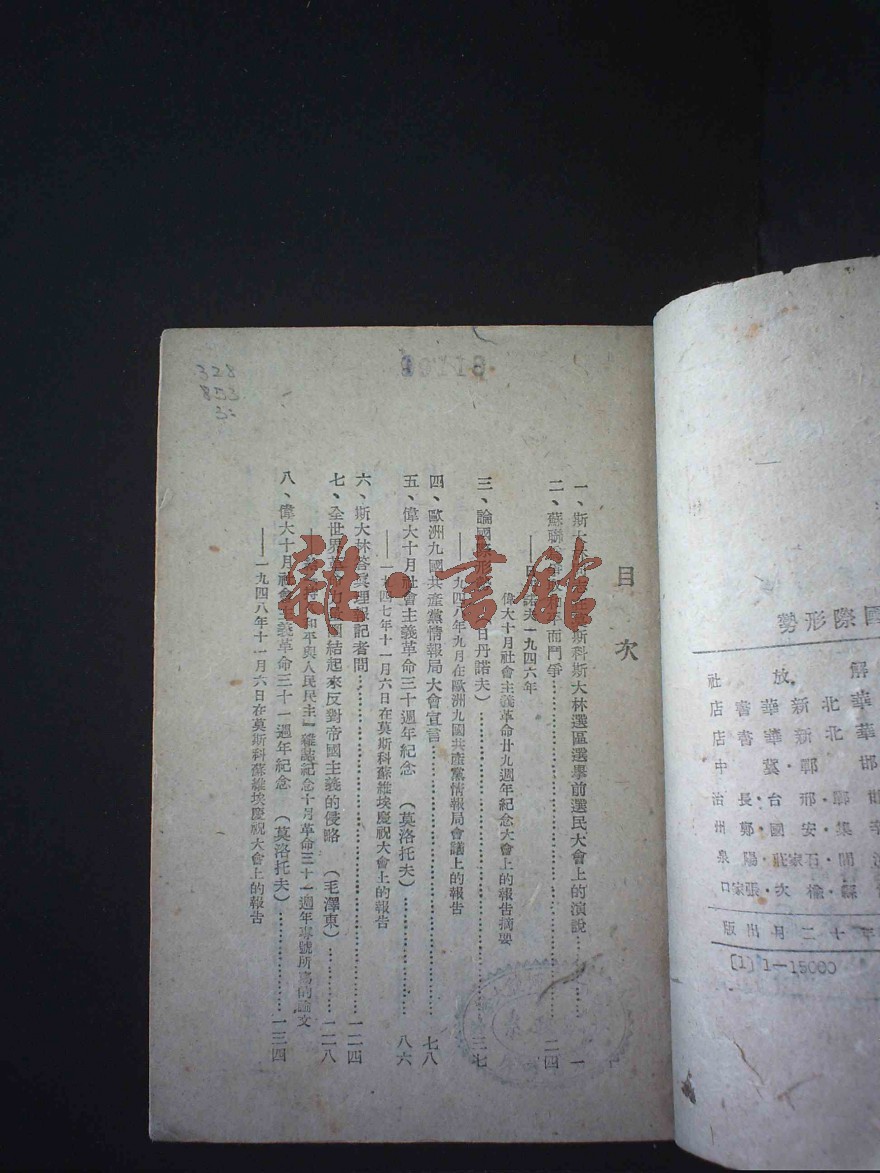 國際形勢
解放社
華北新華書店
華北新華書店
邯鄲·冀中
邯鄲·邢台·長治
國·鄭州
開·石家莊·陽泉
蘇·榆次·張家口
年十二月出版
[1] 1—15000
目次
一、斯大林 莫斯科斯大林選區選舉前選民大會上的演說……一
二、蘇聯 而鬥爭……二四
諾夫一九四六年偉大十月社會主義革命廿九週年紀念大會上的報告摘要
三、論國際形 (日丹諾夫)……三七
——一九四八年九月在歐洲九國共產黨情報局會議上的報告
四、歐洲九國共產黨情報局大會宣言……七八
五、偉大十月社會主義革命三十週年紀念 (莫洛托夫)……八六
——一九四七年十一月六日在莫斯科蘇維埃慶祝大會上的報告
六、斯大林答真理報記者問……一二四
七、全世界革 團結起來反對帝國主義的侵略 (毛澤東)……一二八
和平與人民民主」雜誌紀念十月革命三十一週年專號所寫的論文
八、偉大十月社會主義革命三十一週年紀念 (莫洛托夫)……一三四
——一九四八年十一月六日在莫斯科蘇維埃慶祝大會上的報告
328
853
3:
雜·書館